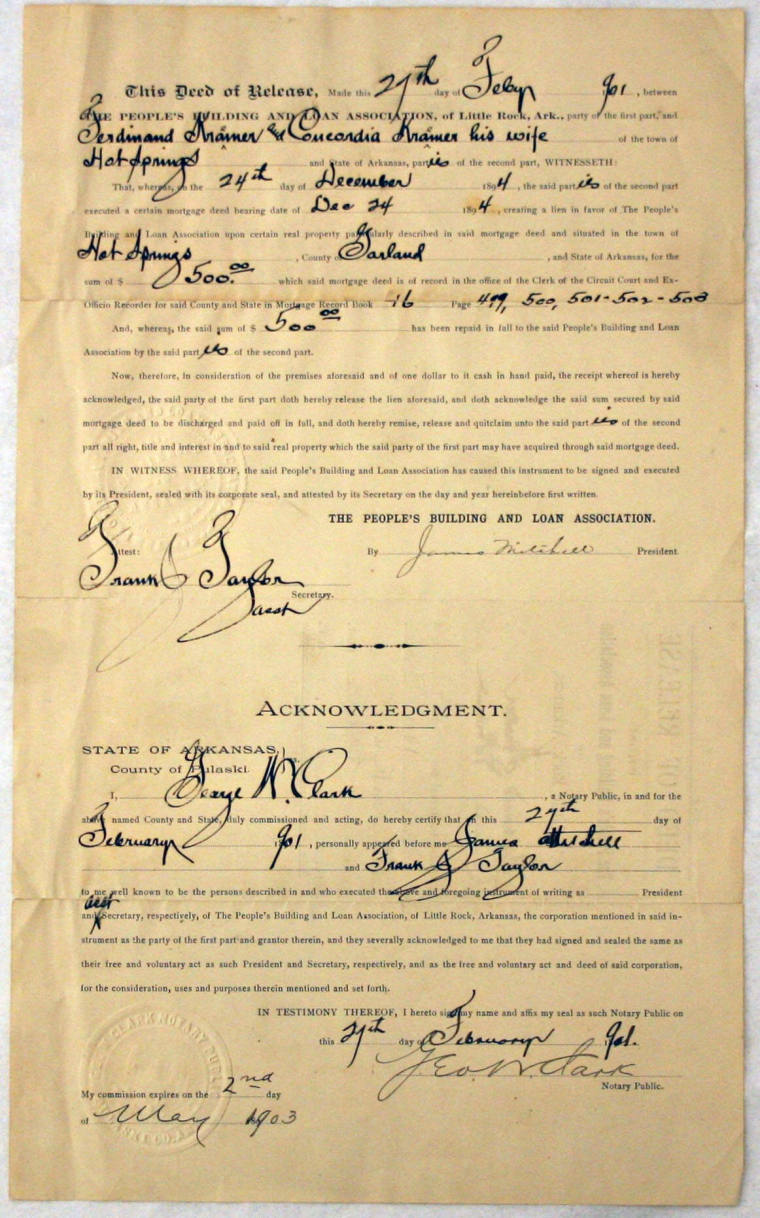 This Deed of Release, Made this 27th day of Feby 1901, between
THE PEOPLE'S BUILDING AND LOAN ASSOCIATION, of Little Rock, Ark., party of the first part, and
Ferdinand Krämer and Concordia Krämer his wife of the town of
Hot Springs and State of Arkansas, parties of the second part, WITNESSETH:
That, whereas, on the 24th day of December 1894, the said parties of the second part
executed a certain mortgage deed bearing date of Dec 24 1894, creating a lien in favor of The People's
Building and Loan Association upon certain real property particularly described in said mortgage deed and situated in the town of
Hot Springs, County of Garland, and State of Arkansas, for the
sum of $ 500.00 which said mortgage deed is of record in the office of the Clerk of the Circuit Court and Ex-
Officio Recorder for said County and State in Mortgage Record Book 16 Page 499, 500, 501-502-503
And, whereas, the said sum of $ 500.00 has been repaid in full to the said People's Building and Loan
Association by the said parties of the second part.
Now, therefore, in consideration of the premises aforesaid and of one dollar to it cash in hand paid, the receipt whereof is hereby
acknowledged, the said party of the first part doth hereby release the lien aforesaid, and doth acknowledge the said sum secured by said
mortgage deed to be discharged and paid off in full, and doth hereby remise, release and quitclaim unto the said parties of the second
part all right, title and interest in and to said real property which the said party of the first part may have acquired through said mortgage deed.
IN WITNESS WHEREOF, the said People's Building and Loan Association has caused this instrument to be signed and executed
by its President, sealed with its corporate seal, and attested by its Secretary on the day and year hereinbefore first written.
THE PEOPLE'S BUILDING AND LOAN ASSOCIATION.
Attest: By James Mitchell President.
Frank J Taylor
Secretary.
asst
ACKNOWLEDGMENT.
STATE OF ARKANSAS,
County of Pulaski.
I, George W. Clark, a Notary Public, in and for the
above named County and State, duly commissioned and acting, do hereby certify that on this 27th day of
February 1901, personally appeared before me James Mitchell
and Frank J Taylor
to me well known to be the persons described in and who executed the above and foregoing instrument of writing as President
asst
and Secretary, respectively, of The People's Building and Loan Association, of Little Rock, Arkansas, the corporation mentioned in said in-
strument as the party of the first part and grantor therein, and they severally acknowledged to me that they had signed and sealed the same as
their free and voluntary act as such President and Secretary, respectively, and as the free and voluntary act and deed of said corporation,
for the consideration, uses and purposes therein mentioned and set forth.
IN TESTIMONY THEREOF, I hereto sign my name and affix my seal as such Notary Public on
this 27th day of February 1901.
Geo. W. Clark
Notary Public.
My commission expires on the 2nd day
of May 1903